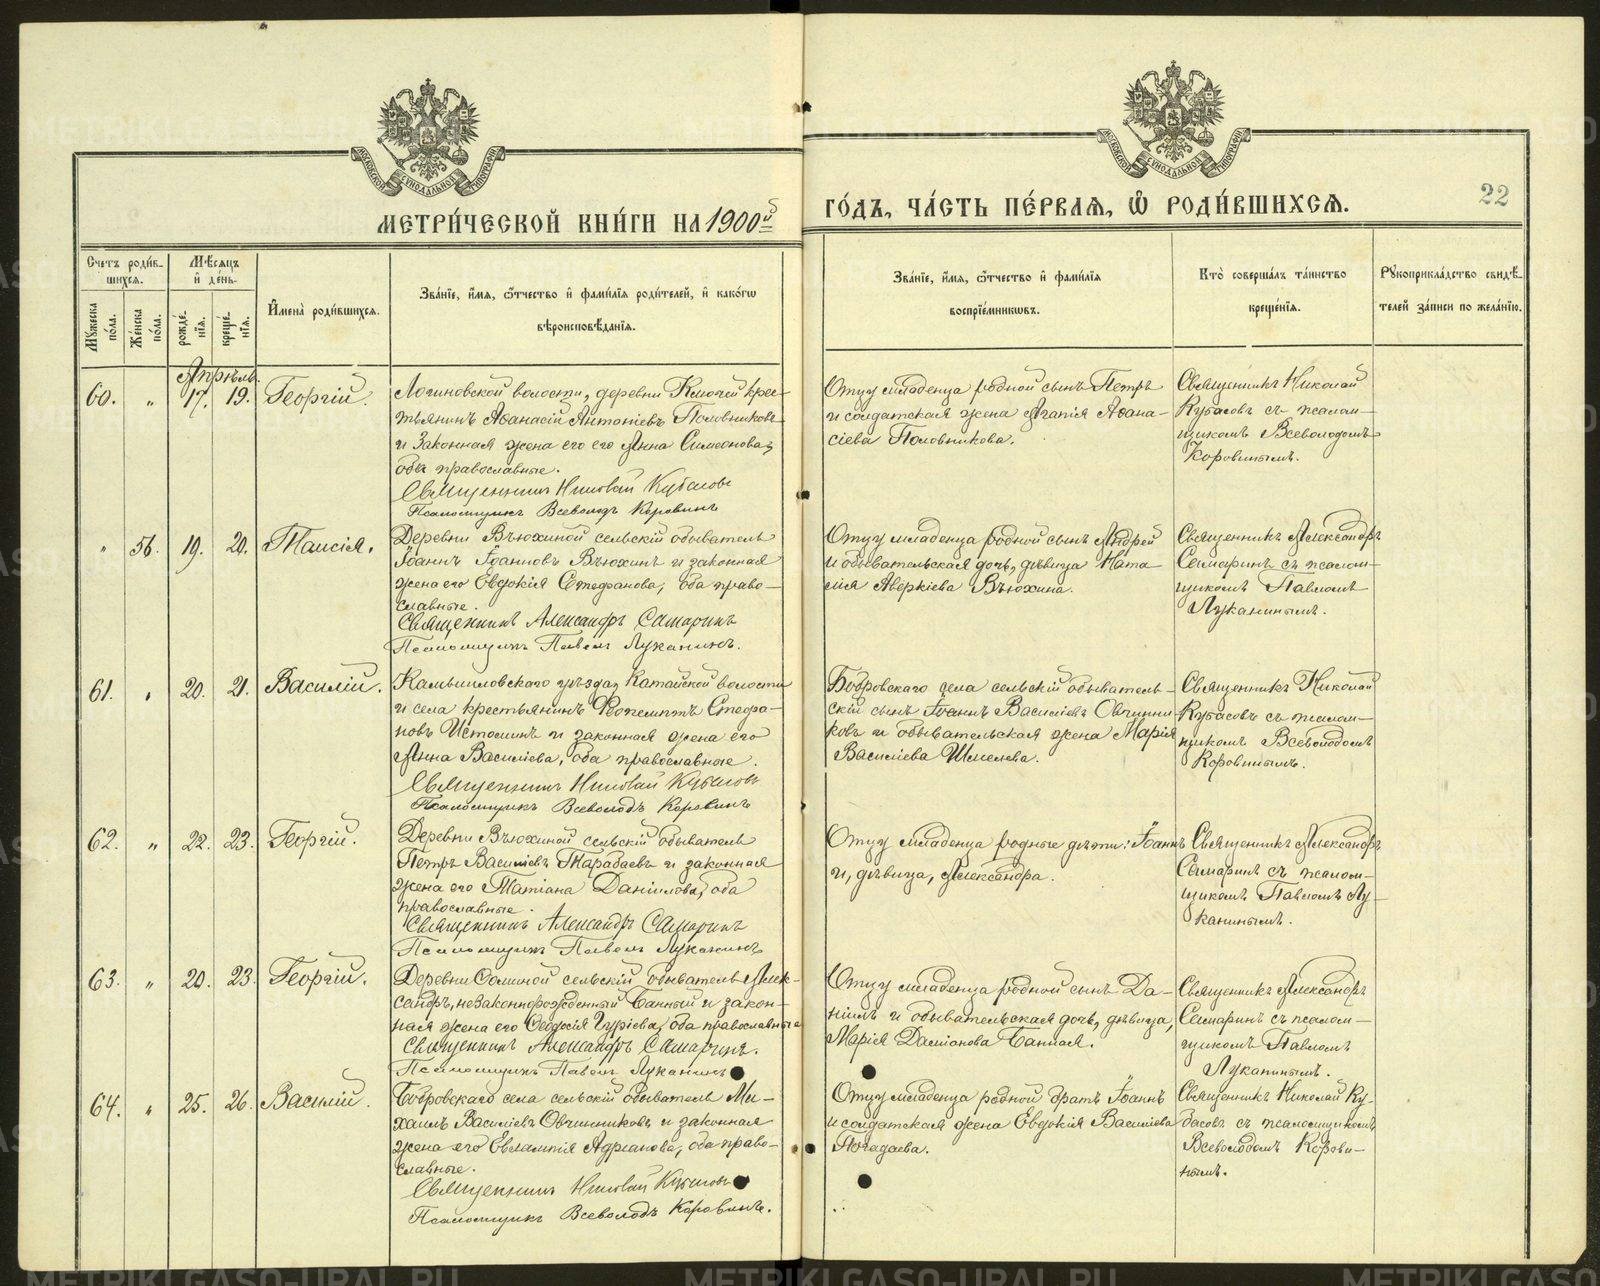 МЕТРИ́ЧЕСКОЙ КНИ́ГИ НА 1900й
ГО́ДЪ, ЧА́СТЬ ПЕ́РВАЯ, Ѡ҆ РОДИ́ВШИХСЯ.
22
МОСКОВСКОЙ СѴНОДАЛЬНОЙ ТИПОГРАФІИ
МОСКОВСКОЙ СѴНОДАЛЬНОЙ ТИПОГРАФІИ
Счетъ роди́в-
шихся.
Мѣ́сяцъ
и҆ де́нь.
Мꙋ́жеска по́ла.
Же́нска по́ла.
рожде́нїя.
креще́нїя.
И҆мена̀ роди́вшихся.
Зва́нїе, и҆́мя, ѻ҆́тчество и҆ фамѝлїя роди́телей, и҆ како́гѡ
вѣроисповѣ́данїя.
Зва́нїе, и҆́мя, ѻ҆́тчество и҆ фамѝлїя
воспрїе́мниковъ.
Кто̀ соверша́лъ та́инство
креще́нїя.
Рꙋкоприкла́дство свидѣ́-
телей за́писи по жела́нїю.
Апрѣль.
60. " 17. 19. Георгій.
Логиновской волости, деревни Ключей крес-
тьянинъ Аѳанасій Антоніевъ Половниковъ
и законная жена его его Анна Симеонова,
оба православные.
Священникъ Николай Кубасовъ
Псаломщикъ Всеволодъ Коровинъ
Отцу младенца родной сынъ Петръ
и солдатская жена Агапія Аѳана-
сіева Половникова.
Священникъ Николай
Кубасовъ съ псалом-
щикомъ Всеволодомъ
Коровинымъ.
" 56. 19. 20. Таисія.
Деревни Вьюхиной сельскій обыватель
Іоаннъ Іоанновъ Вьюхинъ и законная
жена его Евдокія Стефанова, оба право-
славные.
Священникъ Александръ Самаринъ
Псаломщикъ Павелъ Луканинъ.
Отцу младенца родной сынъ Андрей
и обывательская дочь, дѣвица Ната-
лія Аверкіева Вьюхина.
Священникъ Александръ
Самаринъ съ псалом-
щикомъ Павломъ
Луканинымъ.
61. " 20. 21. Василій.
Камышловскаго уѣзда, Катайской волости
и села крестьянинъ Стефа-
новъ Истоминъ и законная жена его
Анна Василіева, оба православные.
Священникъ Николай Кубасовъ
Псаломщикъ Всеволодъ Коровинъ
Бобровскаго села сельскій обыватель-
скій сынъ Іоаннъ Василіевъ Овчинни-
ковъ и обывательская жена Марія
Василіева Шмелева.
Священникъ Николай
Кубасовъ съ псалом-
щикомъ Всеволодомъ
Коровинымъ.
62. " 22. 23. Георгій.
Деревни Вьюхиной сельскій обыватель
Петръ Василіевъ Тарабаевъ и законная
жена его Татіана Даніилова, оба
православные.
Священникъ Александръ Самаринъ
Псаломщикъ Павелъ Луканинъ
Отцу младенца родные дѣти: Іоаннъ
и, дѣвица, Александра.
Священникъ Александръ
Самаринъ съ псалом-
щикомъ Павломъ Лу-
канинымъ.
63. " 20. 23. Георгій.
Деревни сельскій обыватель Алек-
сандръ, незаконнорожденный Банный и закон-
ная жена его Ѳеодосія Гуріева, оба православные
Священникъ Александръ Самаринъ.
Псаломщикъ Павелъ Луканинъ
Отцу младенца родной сынъ Да-
ніилъ и обывательская дочь, дѣвица,
Марія Даміанова Банная.
Священникъ Александръ
Самаринъ съ псалом-
щикомъ Павломъ
Луканинымъ.
64. " 25. 26. Василій.
Бобровскаго села сельскій обыватель Ми-
хаилъ Василіевъ Овчинниковъ и законная
жена его Евлампія Адріанова, оба право-
славные.
Священникъ Николай Кубасовъ
Псаломщикъ Всеволодъ Коровинъ.
Отцу младенца родной братъ Іоаннъ
и солдатская жена Евдокія Василіева
Погадаева.
Священникъ Николай Ку-
басовъ съ псаломщикомъ
Всеволодомъ Корови-
нымъ.
METRIKI.GASO-URAL.RU